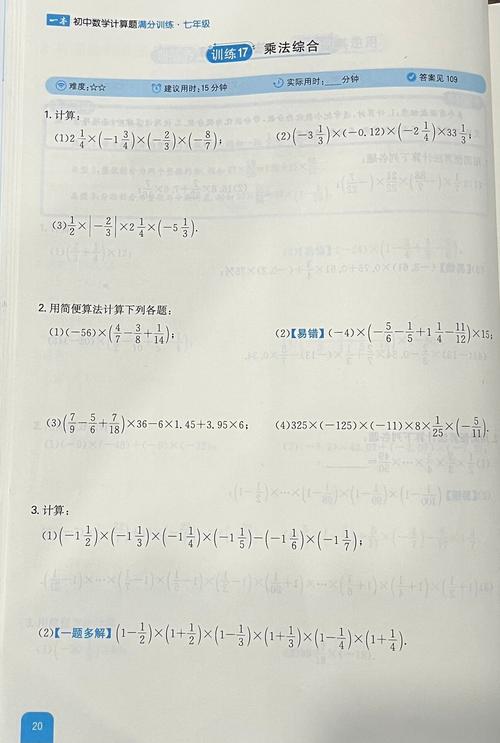 一本 初中数学计算题满分训练·七年级
训练17 乘法综合
难度:☆☆ 建议用时:15分钟 实际用时:____分钟 答案见 109
1. 计算:
(1) 2\frac{1}{4}×(-1\frac{3}{4})×(-\frac{2}{3})×(-\frac{8}{7}); (2) (-3\frac{1}{3})×(-0.12)×(-2\frac{1}{4})×33\frac{1}{3};
(3) \frac{1}{2}×|-\frac{2}{3}|×2\frac{1}{4}×(-5\frac{1}{3}).
2. 用简便算法计算下列各题:
(1) (-56)×(\frac{4}{7}-\frac{3}{8}+\frac{1}{14}); (2)【易错】(-4)×(-\frac{5}{6}-\frac{1}{5}+1\frac{1}{4}-\frac{11}{12})×15;
(3) (\frac{7}{9}-\frac{5}{6}+\frac{7}{18})×36-6×1.45+3.95×6; (4) 325×(-125)×(-11)×8×\frac{1}{25}×(-\frac{5}{11}).
3. 计算:
(1) (-1\frac{1}{2})×(-1\frac{1}{3})×(-1\frac{1}{4})×(-1\frac{1}{5})-(-1\frac{1}{6})×(-1\frac{1}{7});
(2)【一题多解】(1-\frac{1}{2})×(1+\frac{1}{2})×(1-\frac{1}{3})×(1+\frac{1}{3})×(1-\frac{1}{4})×(1+\frac{1}{4}).
20